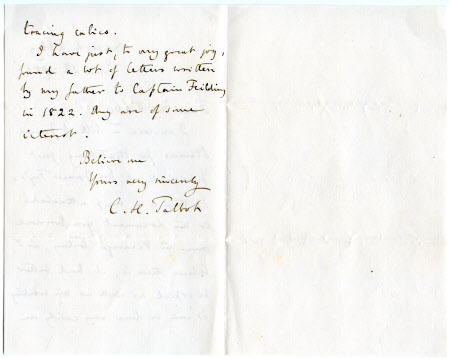 tracing calico.
I have just, to my great joy,
found a lot of letters written
by my father to Captain Feilding
in 1822. They are of some
interest.
Believe me
Yours very sincerely
C. H. Talbot